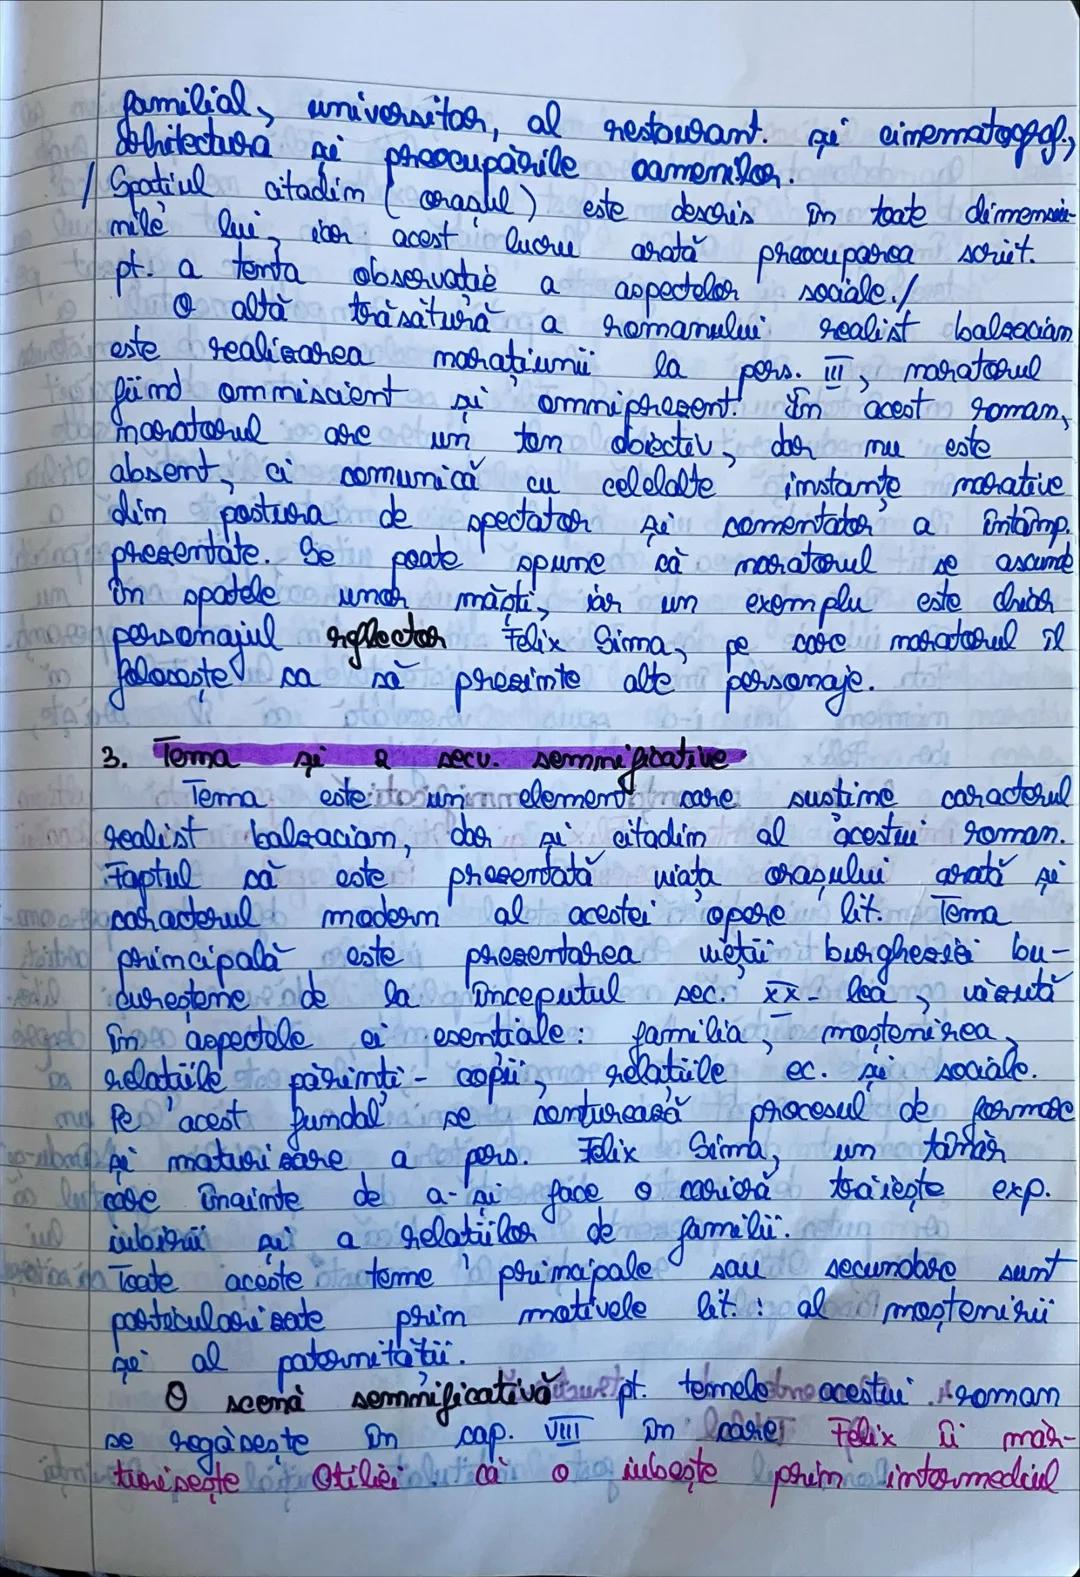 familial, universitar, al restaurant. și cinematogr.,
arhitectura și preocupările oamenilor.
/ Spațiul citadin (orașul) este descris în toate dimensiu-
nile lui, iar acest lucru arată preocuparea scriit.
pt. a tenta observație a aspectelor sociale./
O altă trăsătură a romanului realist balzacian
este realizarea narațiunii la pers. III, naratorul
fiind omniscient și omniprezent. În acest roman,
naratorul are un ton obiectiv, dar nu este
absent, ci comunică cu celelalte instanțe narative
din postura de spectator și comentator a întâmp.
prezentate. Se poate spune că naratorul se ascunde
în spatele unor măști, iar un exemplu este chiar
personajul reflector Felix Sima, pe care naratorul îl
folosește ca să prezinte alte personaje.
3. Tema și 2 secv. semnificative
Tema este un element care susține caracterul
realist balzacian, dar și citadin al acestui roman.
Faptul că este prezentată viața orașului arată și
caracterul modern al acestei opere lit. Tema
principală este prezentarea vieții burgheziei bu-
cureștene de la începutul sec. XX-lea, văzută
în aspectele ei esențiale: familia, moștenirea,
relațiile părinți-copii, relațiile ec. și sociale.
Pe acest fundal se conturează procesul de formare
și maturizare a pers. Felix Sima, un tânăr
care înainte de a-și face o carieră trăiește exp.
iubirii și a relațiilor de familii.
Toate aceste teme principale sau secundare sunt
particularizate prin motivele lit.: al moștenirii
și al paternității.
O scenă semnificativă pt. temele acestui roman
se regăsește în cap. VIII în care Felix îi măr-
turisește Otiliei că o iubește prin intermediul